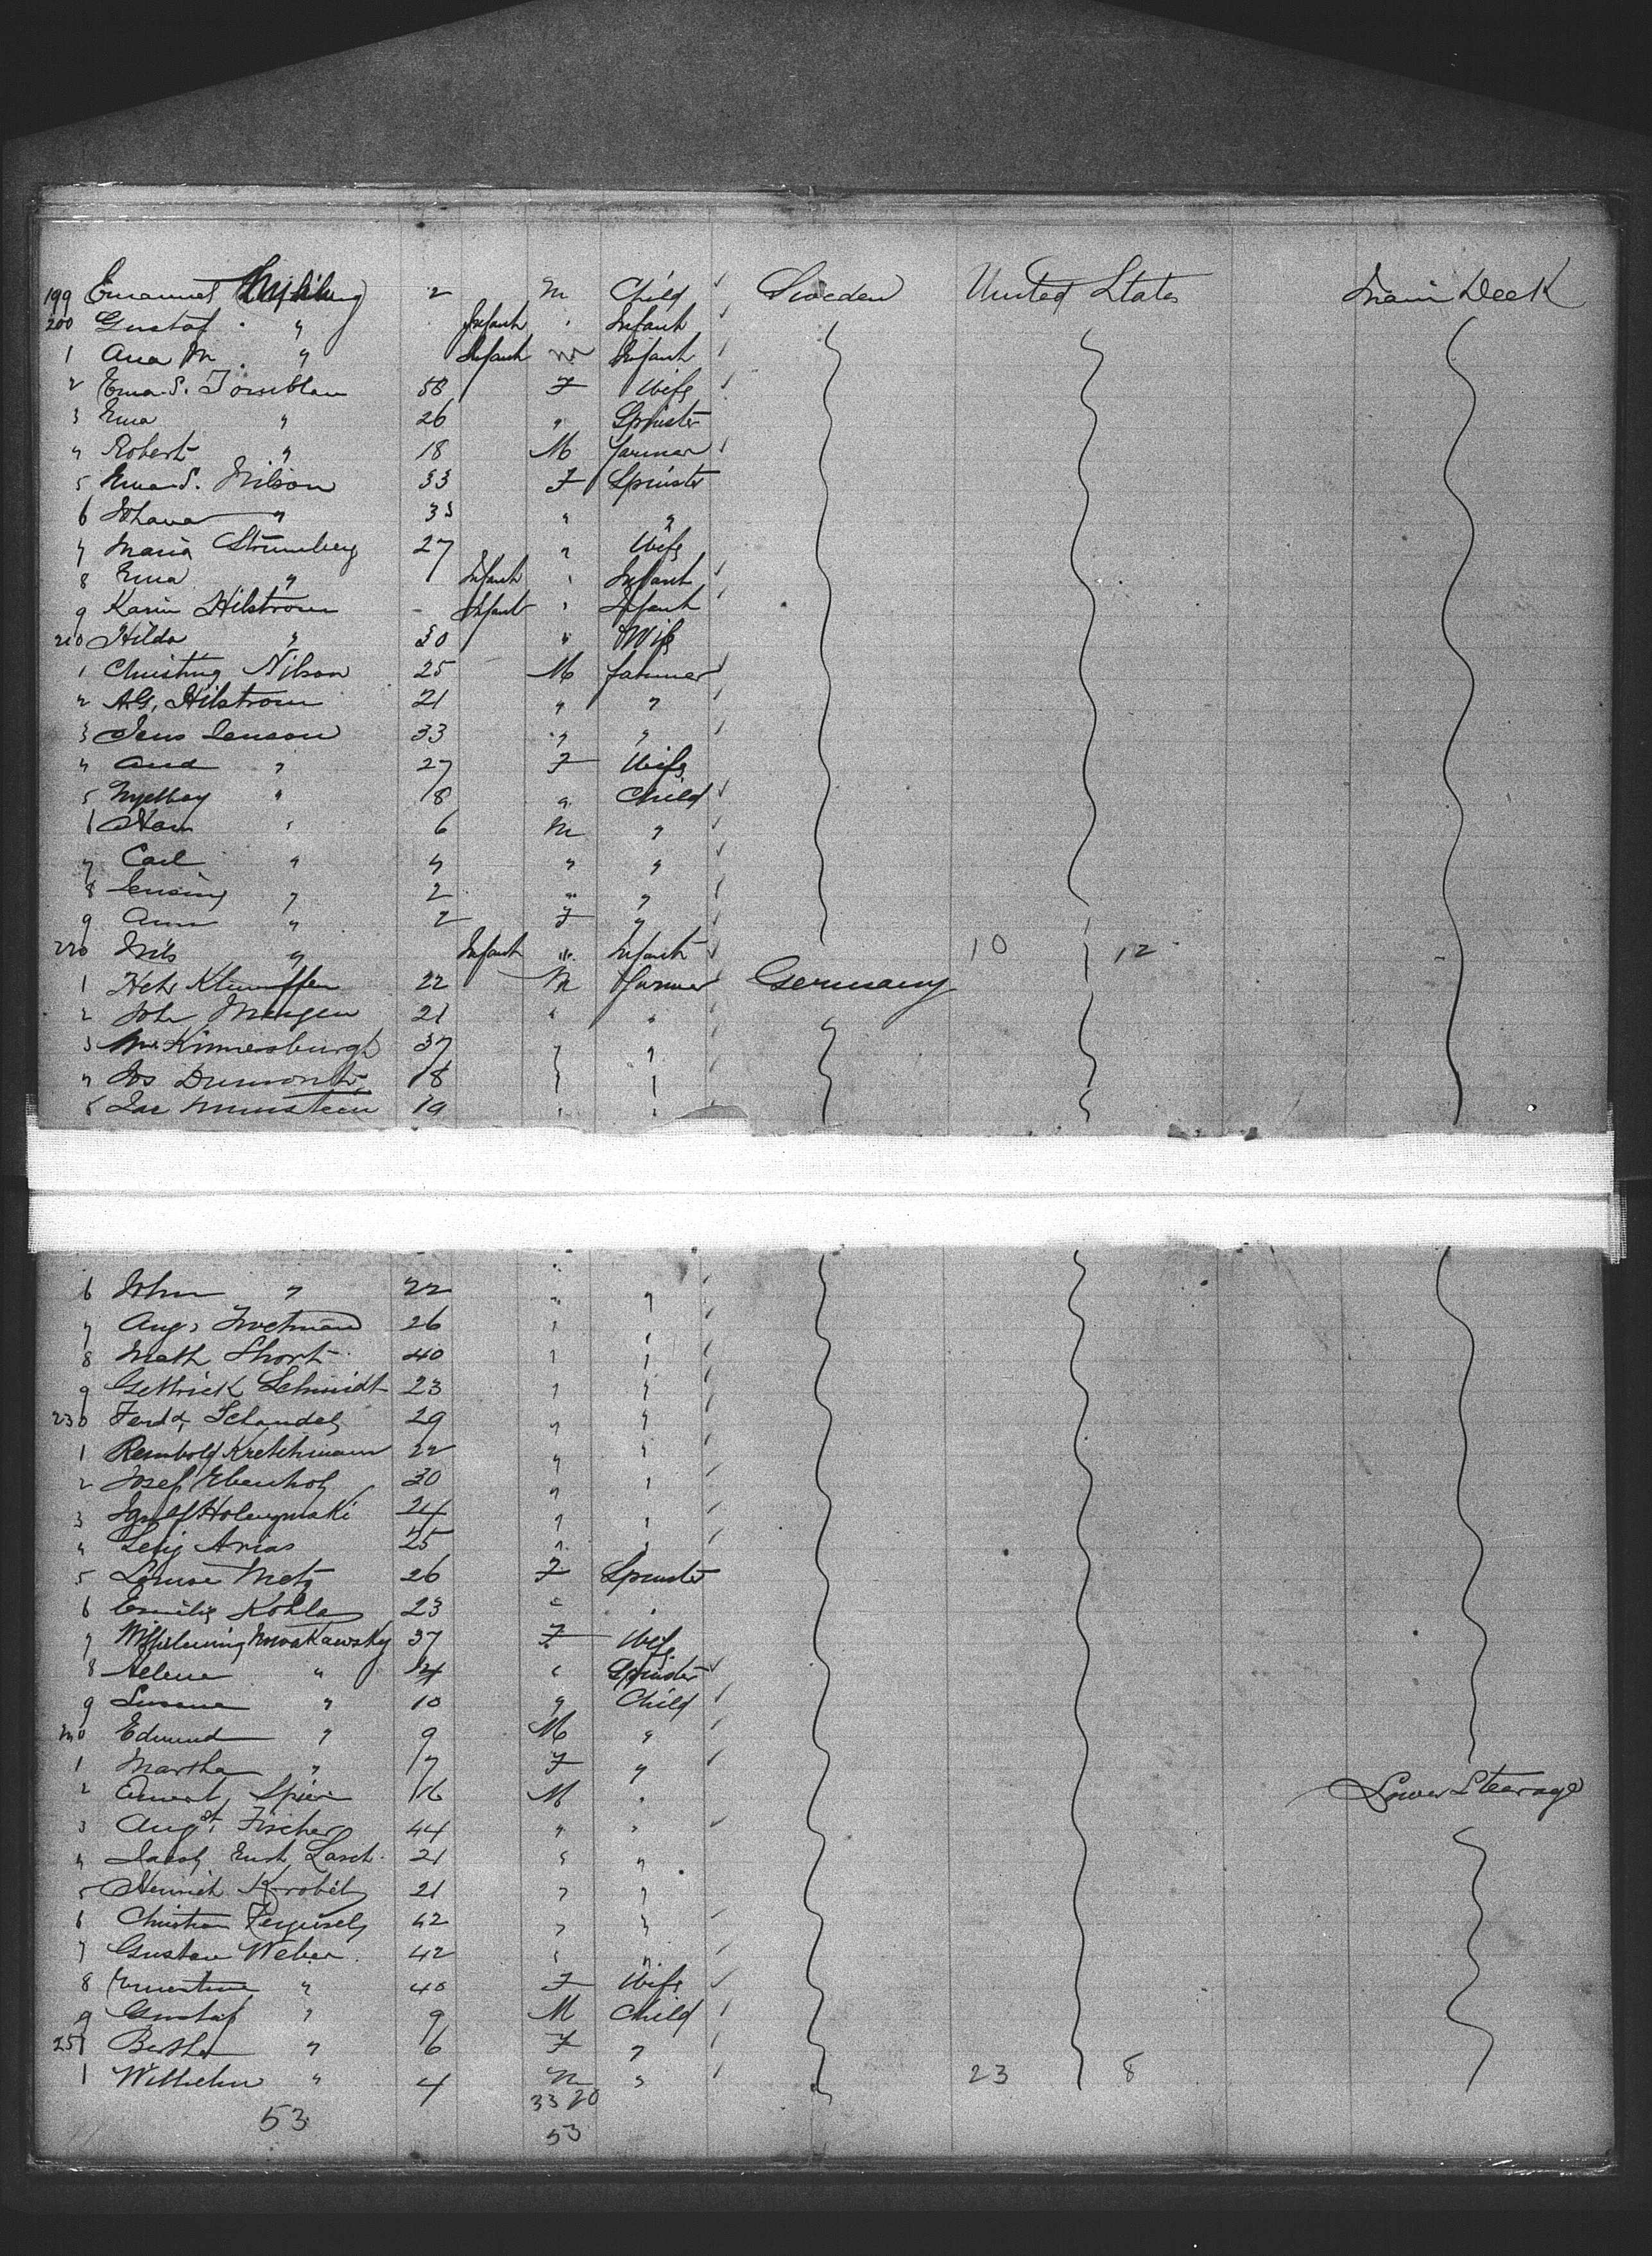 199 Emanuel 2 M Child Sweden United States Main Deck
200 Gustaf " Infant " Infant
1 Ana M " Infant m Infant
2 Erna S. 58 F Wife
3 Erna " 26 " Spinster
4 Robert " 18 M farmer
5 Erna S. Nilson 33 F Spinster
6 Johana " 33 " "
7 Maria Strumberg 27 " Wife
8 Erna " Infant " Infant
9 Karin Hilstrom - Infant " Infant
210 Hilda " 30 " Wife
1 Christing Nilson 25 M farmer
2 A.G. Hilstrom 21 " "
3 Jens Jenson 33 " "
4 And " 27 F Wife
5 " 8 " Child
6 Ham " 6 M "
7 Carl " 4 " "
8 Jensing " 2 " "
9 Ann " 2 F "
220 Nils " Infant " Infant 10 12
1 22 M farmer Germany
2 Joh Mengen 21 " "
3 Kinnersburgh 37 " "
4 Jos Dumont 18 " "
5 Jac Munstein 19 " "
6 John " 22 " "
7 Aug. 26 " "
8 Math Short 40 " "
9 Gettrick Schmidt 23 " "
230 Ferdd. Schandel 29 " "
1 Rembold Kretchmann 22 " "
2 Josef Ebenhoh 30 " "
3 24 " "
4 Arias 25 " "
5 Louise Metz 26 F Spinster
6 Emilie Kohla 23 " "
7 Nowakawsky 37 F Wife
8 Helene " 14 " Spinster
9 Susana " 10 " Child
240 Edmund " 9 M "
1 Martha " 7 F "
2 Ernest Spier 16 M " Lower Steerage
3 Augst. Fischer 44 " "
4 Jacob Lasch 21 " "
5 Heinrich 21 " "
6 Christian 42 " "
7 Gustav Weber 42 " "
8 Ernestine " 40 F Wife
9 Gustaf " 9 M Child
250 Bertha " 6 F "
1 Wilhelm " 4 M " 23 8
33 20
53 53